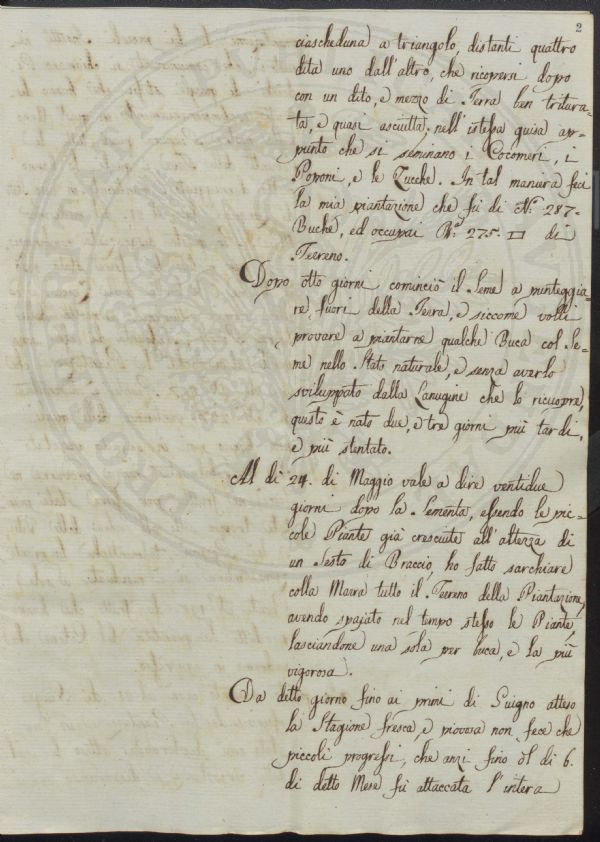 2
ciascheduna a triangolo, distanti quattro
dita uno dall'altro, che ricopersi dopo
con un dito, e mezzo di Terra ben tritura=
ta, e quasi asciutta; nell'istessa guisa ap=
punto che si seminano i Cocomeri, i
Poponi, e le Zucche. In tal maniera feci
la mia piantazione che fù di N.º 287-
Buche, ed occupai B.ª 275. □ di
Terreno.
Dopo otto giorni cominciò il Seme a punteggia=
re fuori della Terra, e siccome volli
provare a piantarne qualche Buca col Se=
me nello Stato naturale, e senza averlo
sviluppato dalla Lanugine che lo ricuopre,
questo è nato due, e tre giorni più tardi,
e più stentato.
Al dì 24. di Maggio vale a dire ventidue
giorni dopo la Sementa, essendo le pic=
cole Piante già cresciute all'altezza di
un Sesto di Braccio, ho fatto sarchiare
colla Marra tutto il Terreno della Piantazione,
avendo spajato nel tempo stesso le Piante,
lasciandone una sola per buca, e la più
vigorosa.
Da detto giorno fino ai primi di Giugno atteso
la Stagione fresca, e piovosa non fece che
piccoli progressi, che anzi fino il dì 6.
di detto Mese fù attaccata l'intera